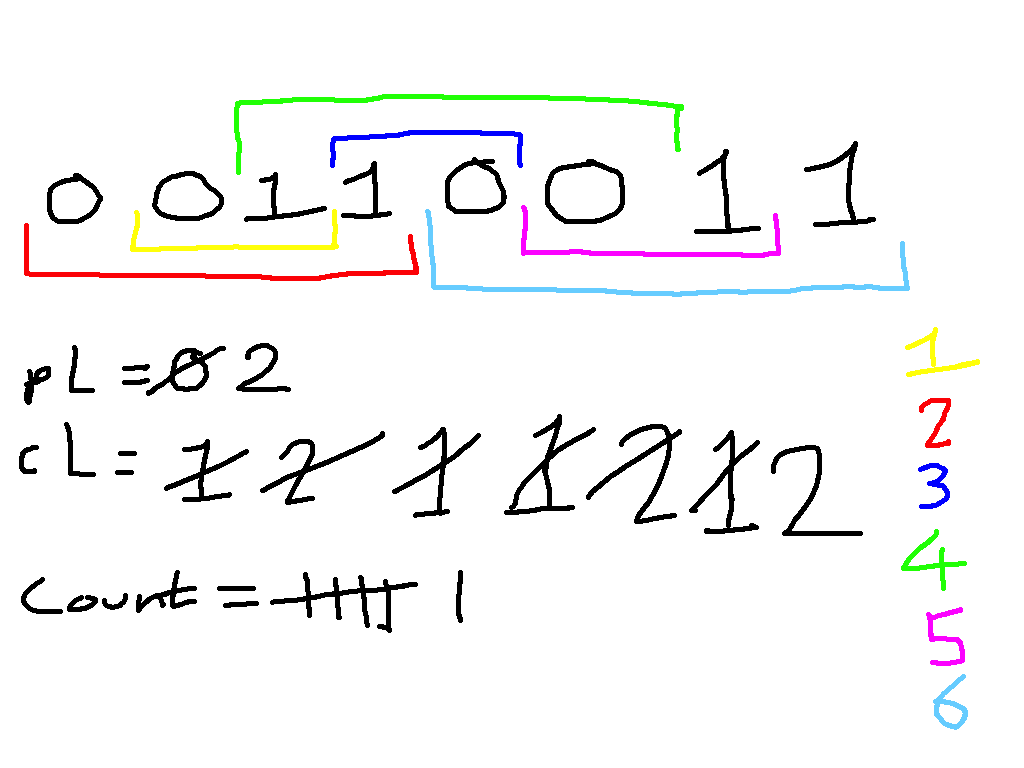 0 0 1 1 0 0 1 1
pL = 0 2
cL = 1 2 1 1 2 1 2
Count = |||| 1
1
2
3
4
5
6